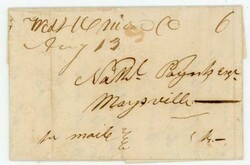 West Union O 6
Aug 13
Nathl. Poyntz esqr
Maysville
pr mail